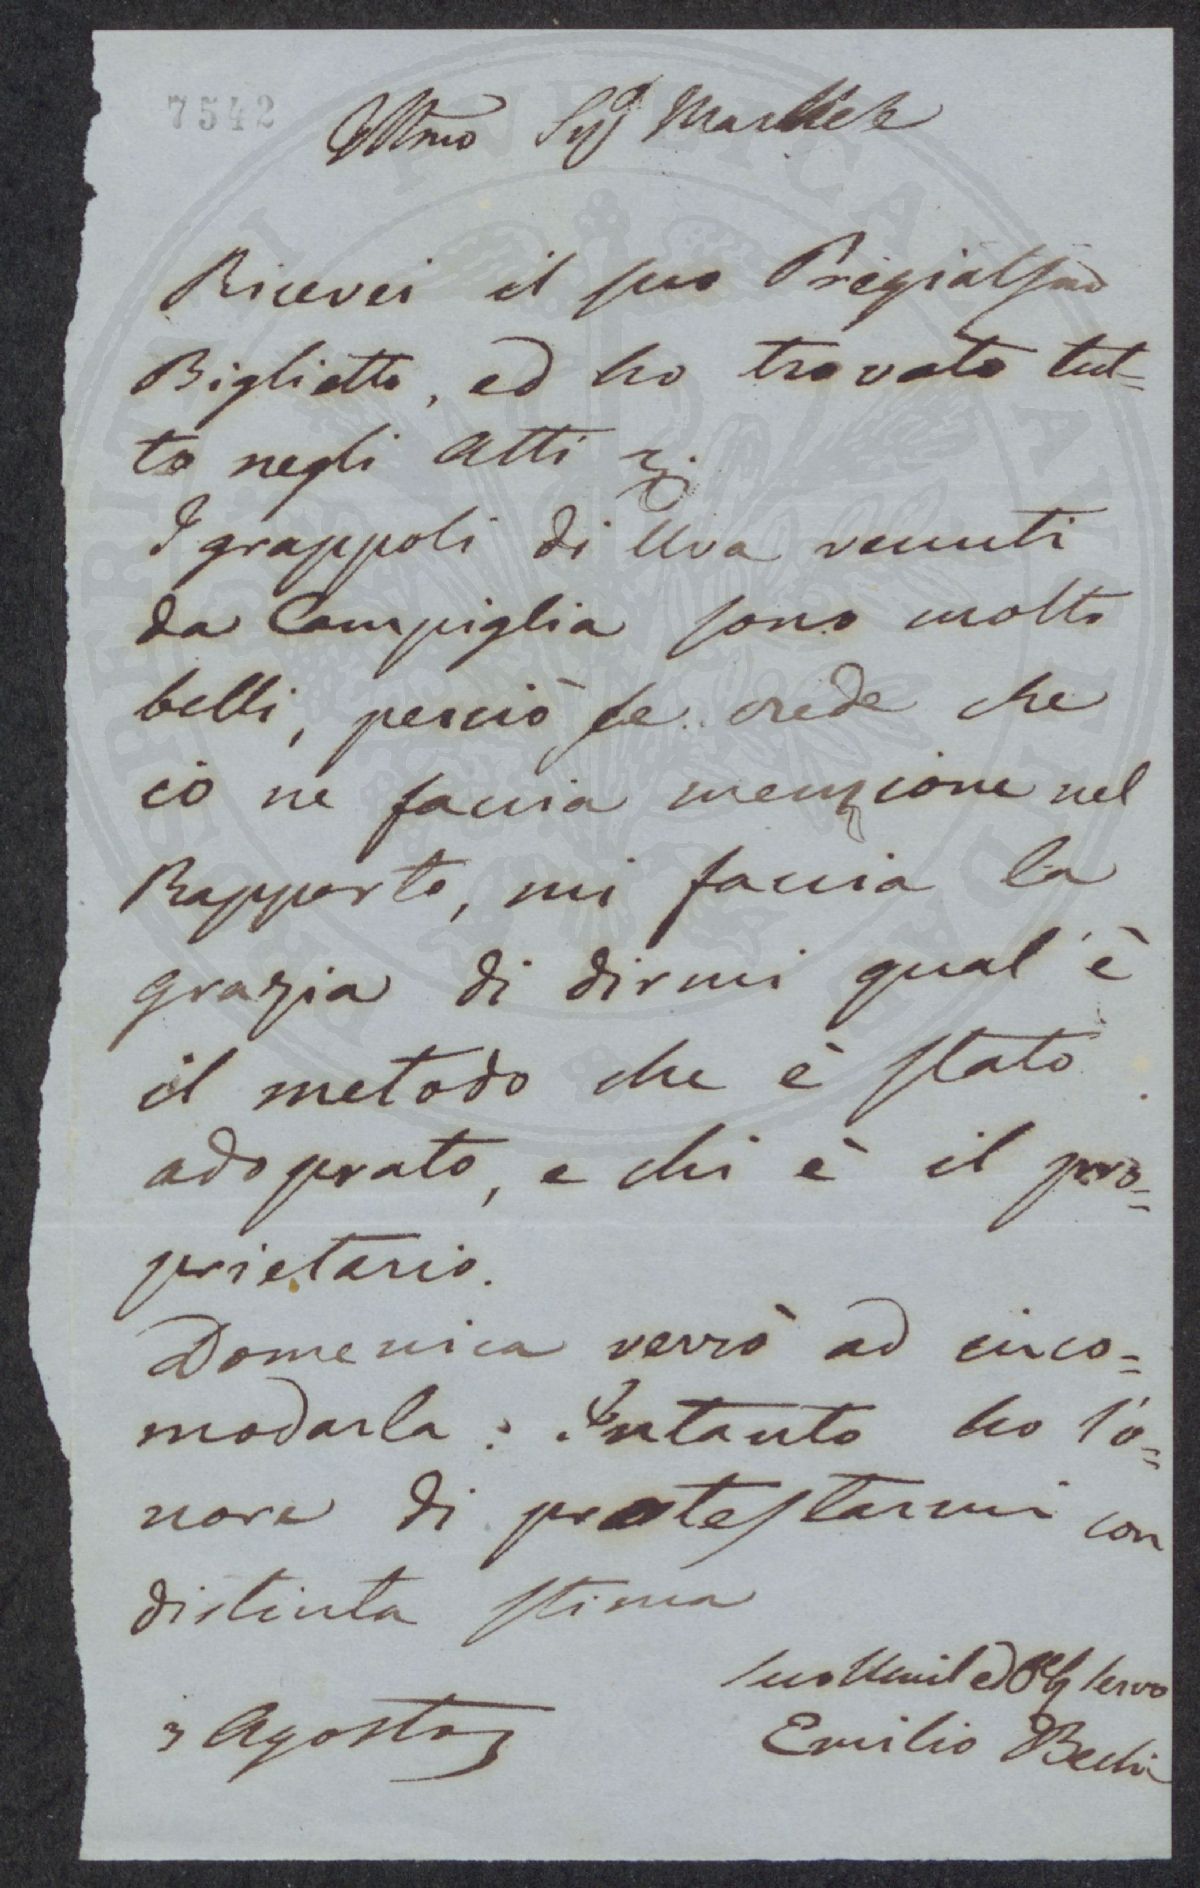 7542
Illmo Sig Marchese
Ricevei il suo Pregiatssmo
Biglietto, ed ho trovato tut=
to negli Atti
I grappoli di Uva venuti
da Campiglia sono molto
belli, perciò se crede che
io ne faccia menzione nel
Rapporto, mi faccia la
grazia di dirmi qual'è
il metodo che è stato
adoprato, e chi è il pro=
prietario.
Domenica verrò ad inco=
modarla: Intanto ho l'o=
nore di protestarmi con
distinta stima
Suo Umil ed Obb servo
3 Agosto
Emilio Bechi